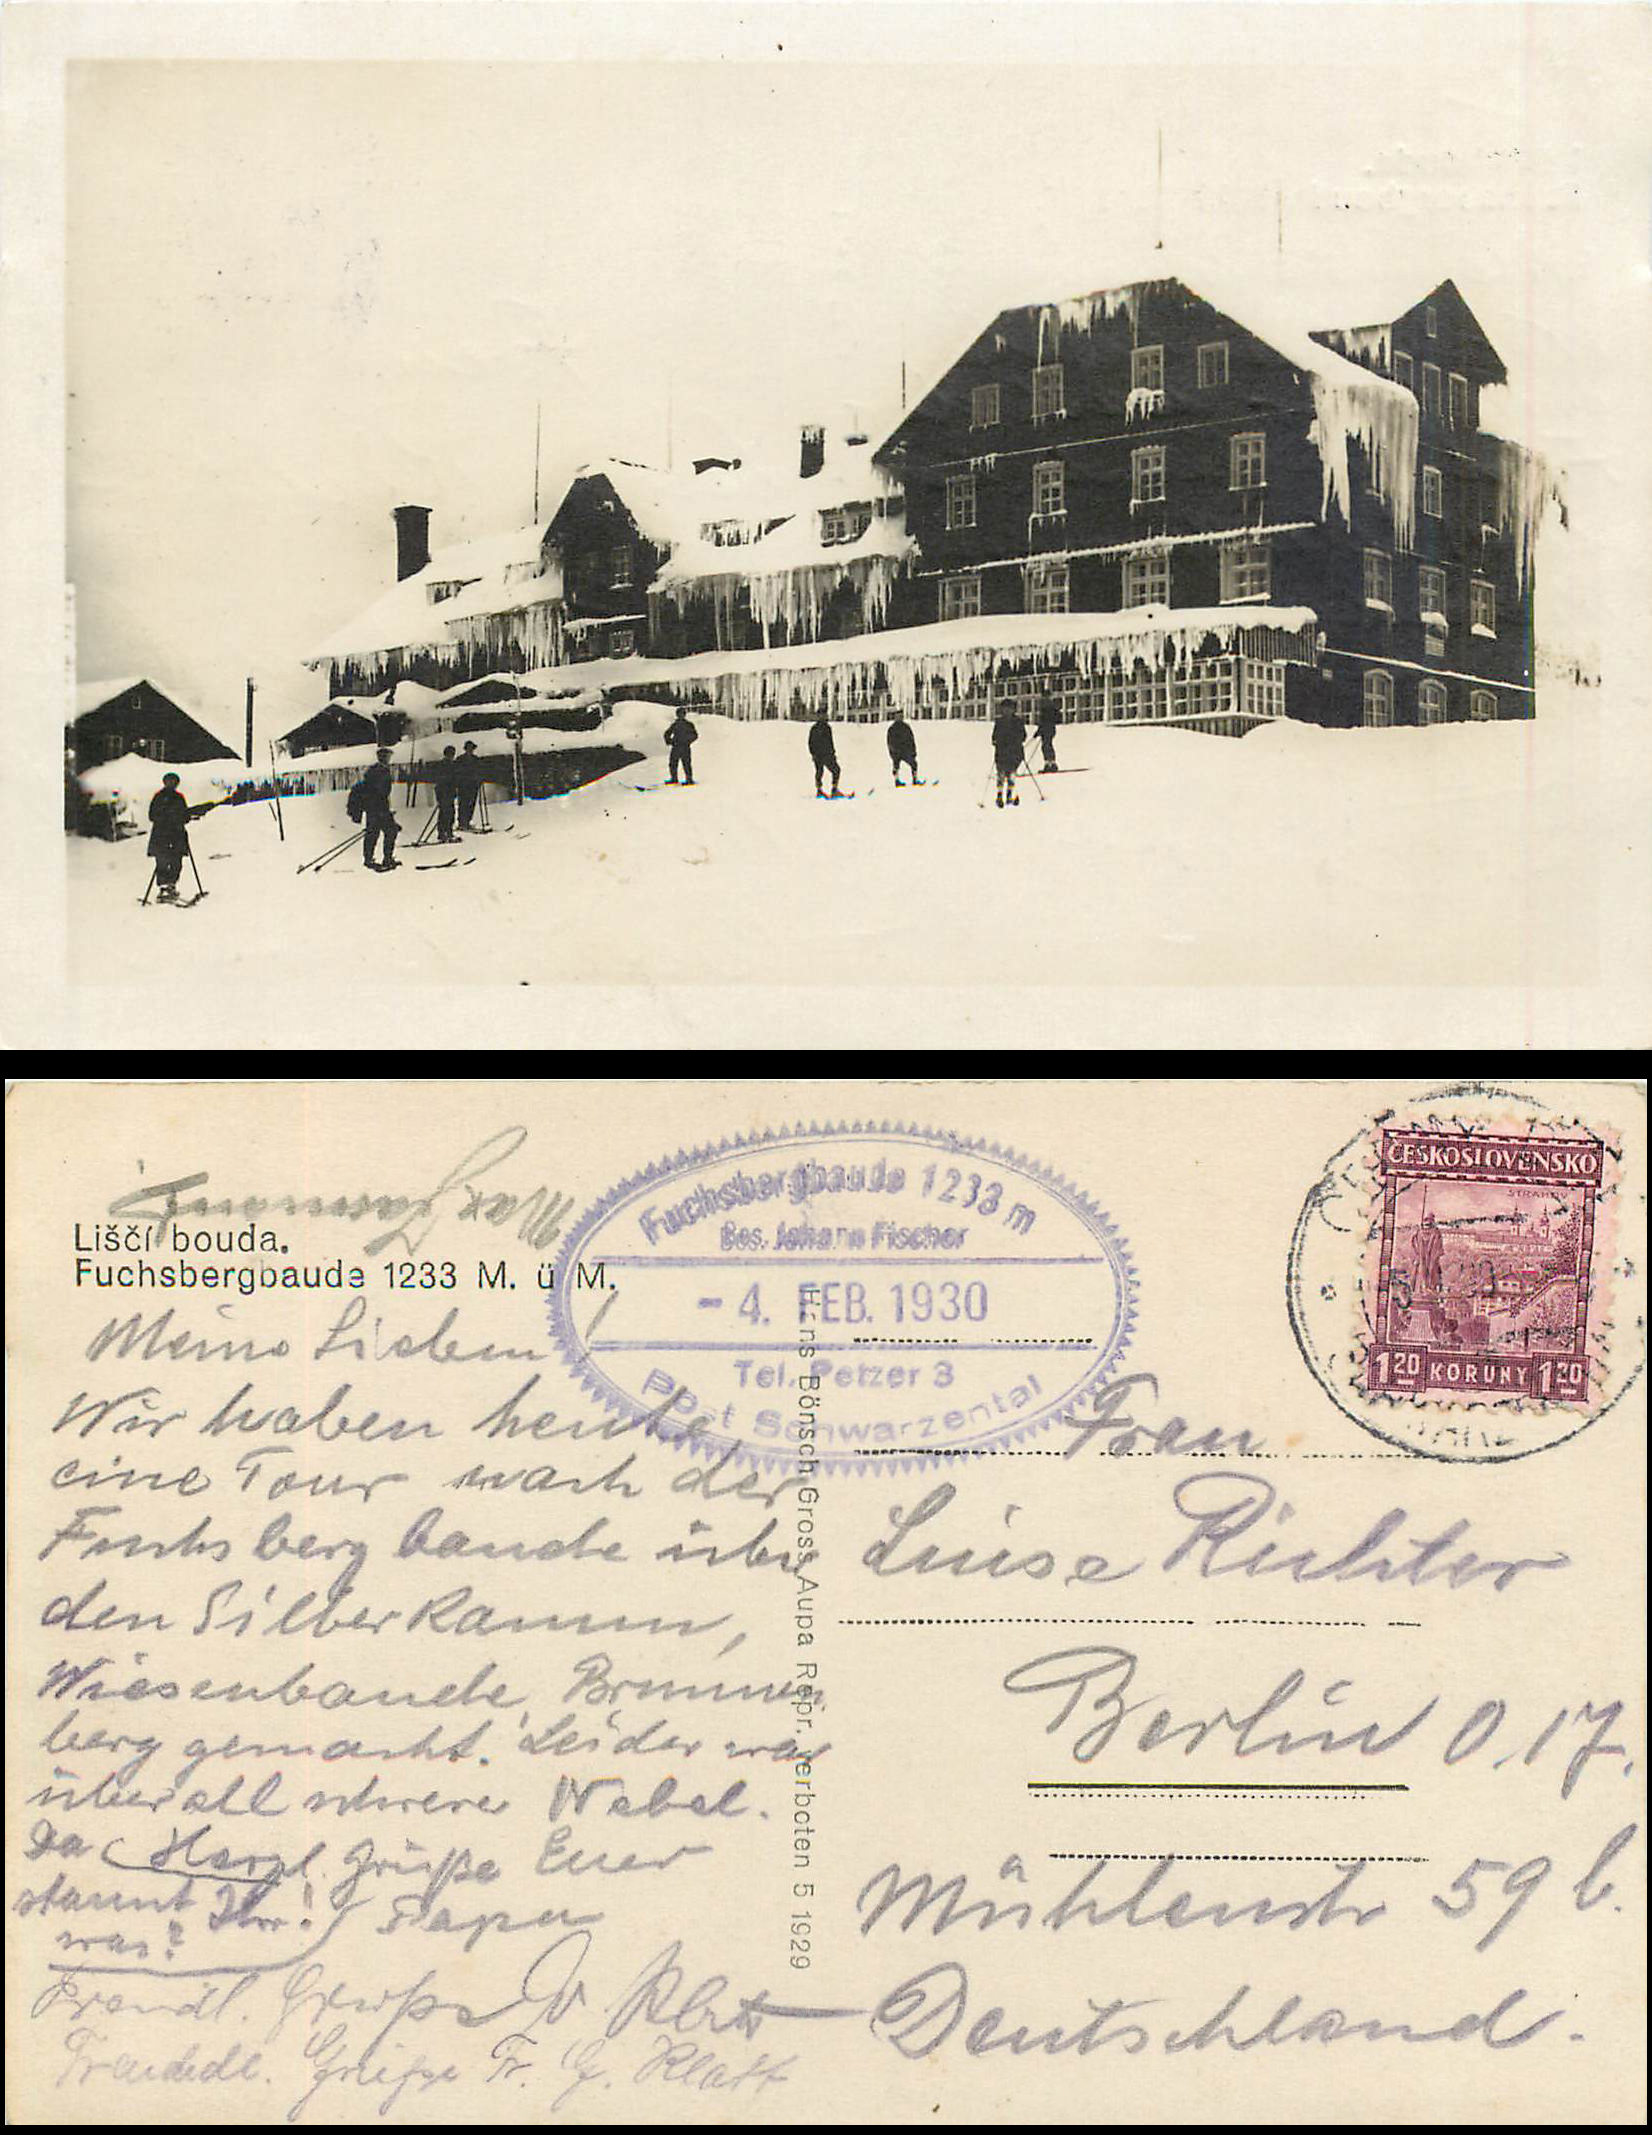 Max
Liščí bouda.
Fuchsbergbaude 1233 M. ü M.
Fuchsbergbaude 1233 m
Bes. Johann Fischer
- 4. FEB. 1930
Tel. Petzer 3
Post Schwarzental
ČESKOSLOVENSKO
STRAHOV
1 20 KORUNY 1 20
Meine Lieben!
Wir haben heute
eine Tour nach der
Fuchsbergbaude über
den Silberkamm,
Wiesenbaude, Brunnen
berg gemacht. Leider war
überall schwerer Nebel.
Da
staunt Ihr!
was?
Herzl. Grüße Euer
Papa
Freundl. Grüße
Freundl. Grüße Fr. G. Klatt
Hans Bönsch Gross Aupa Repr. verboten 5 1929
Frau
Luise Richter
Berlin O. 17.
Mühlenstr 59 b.
Deutschland.